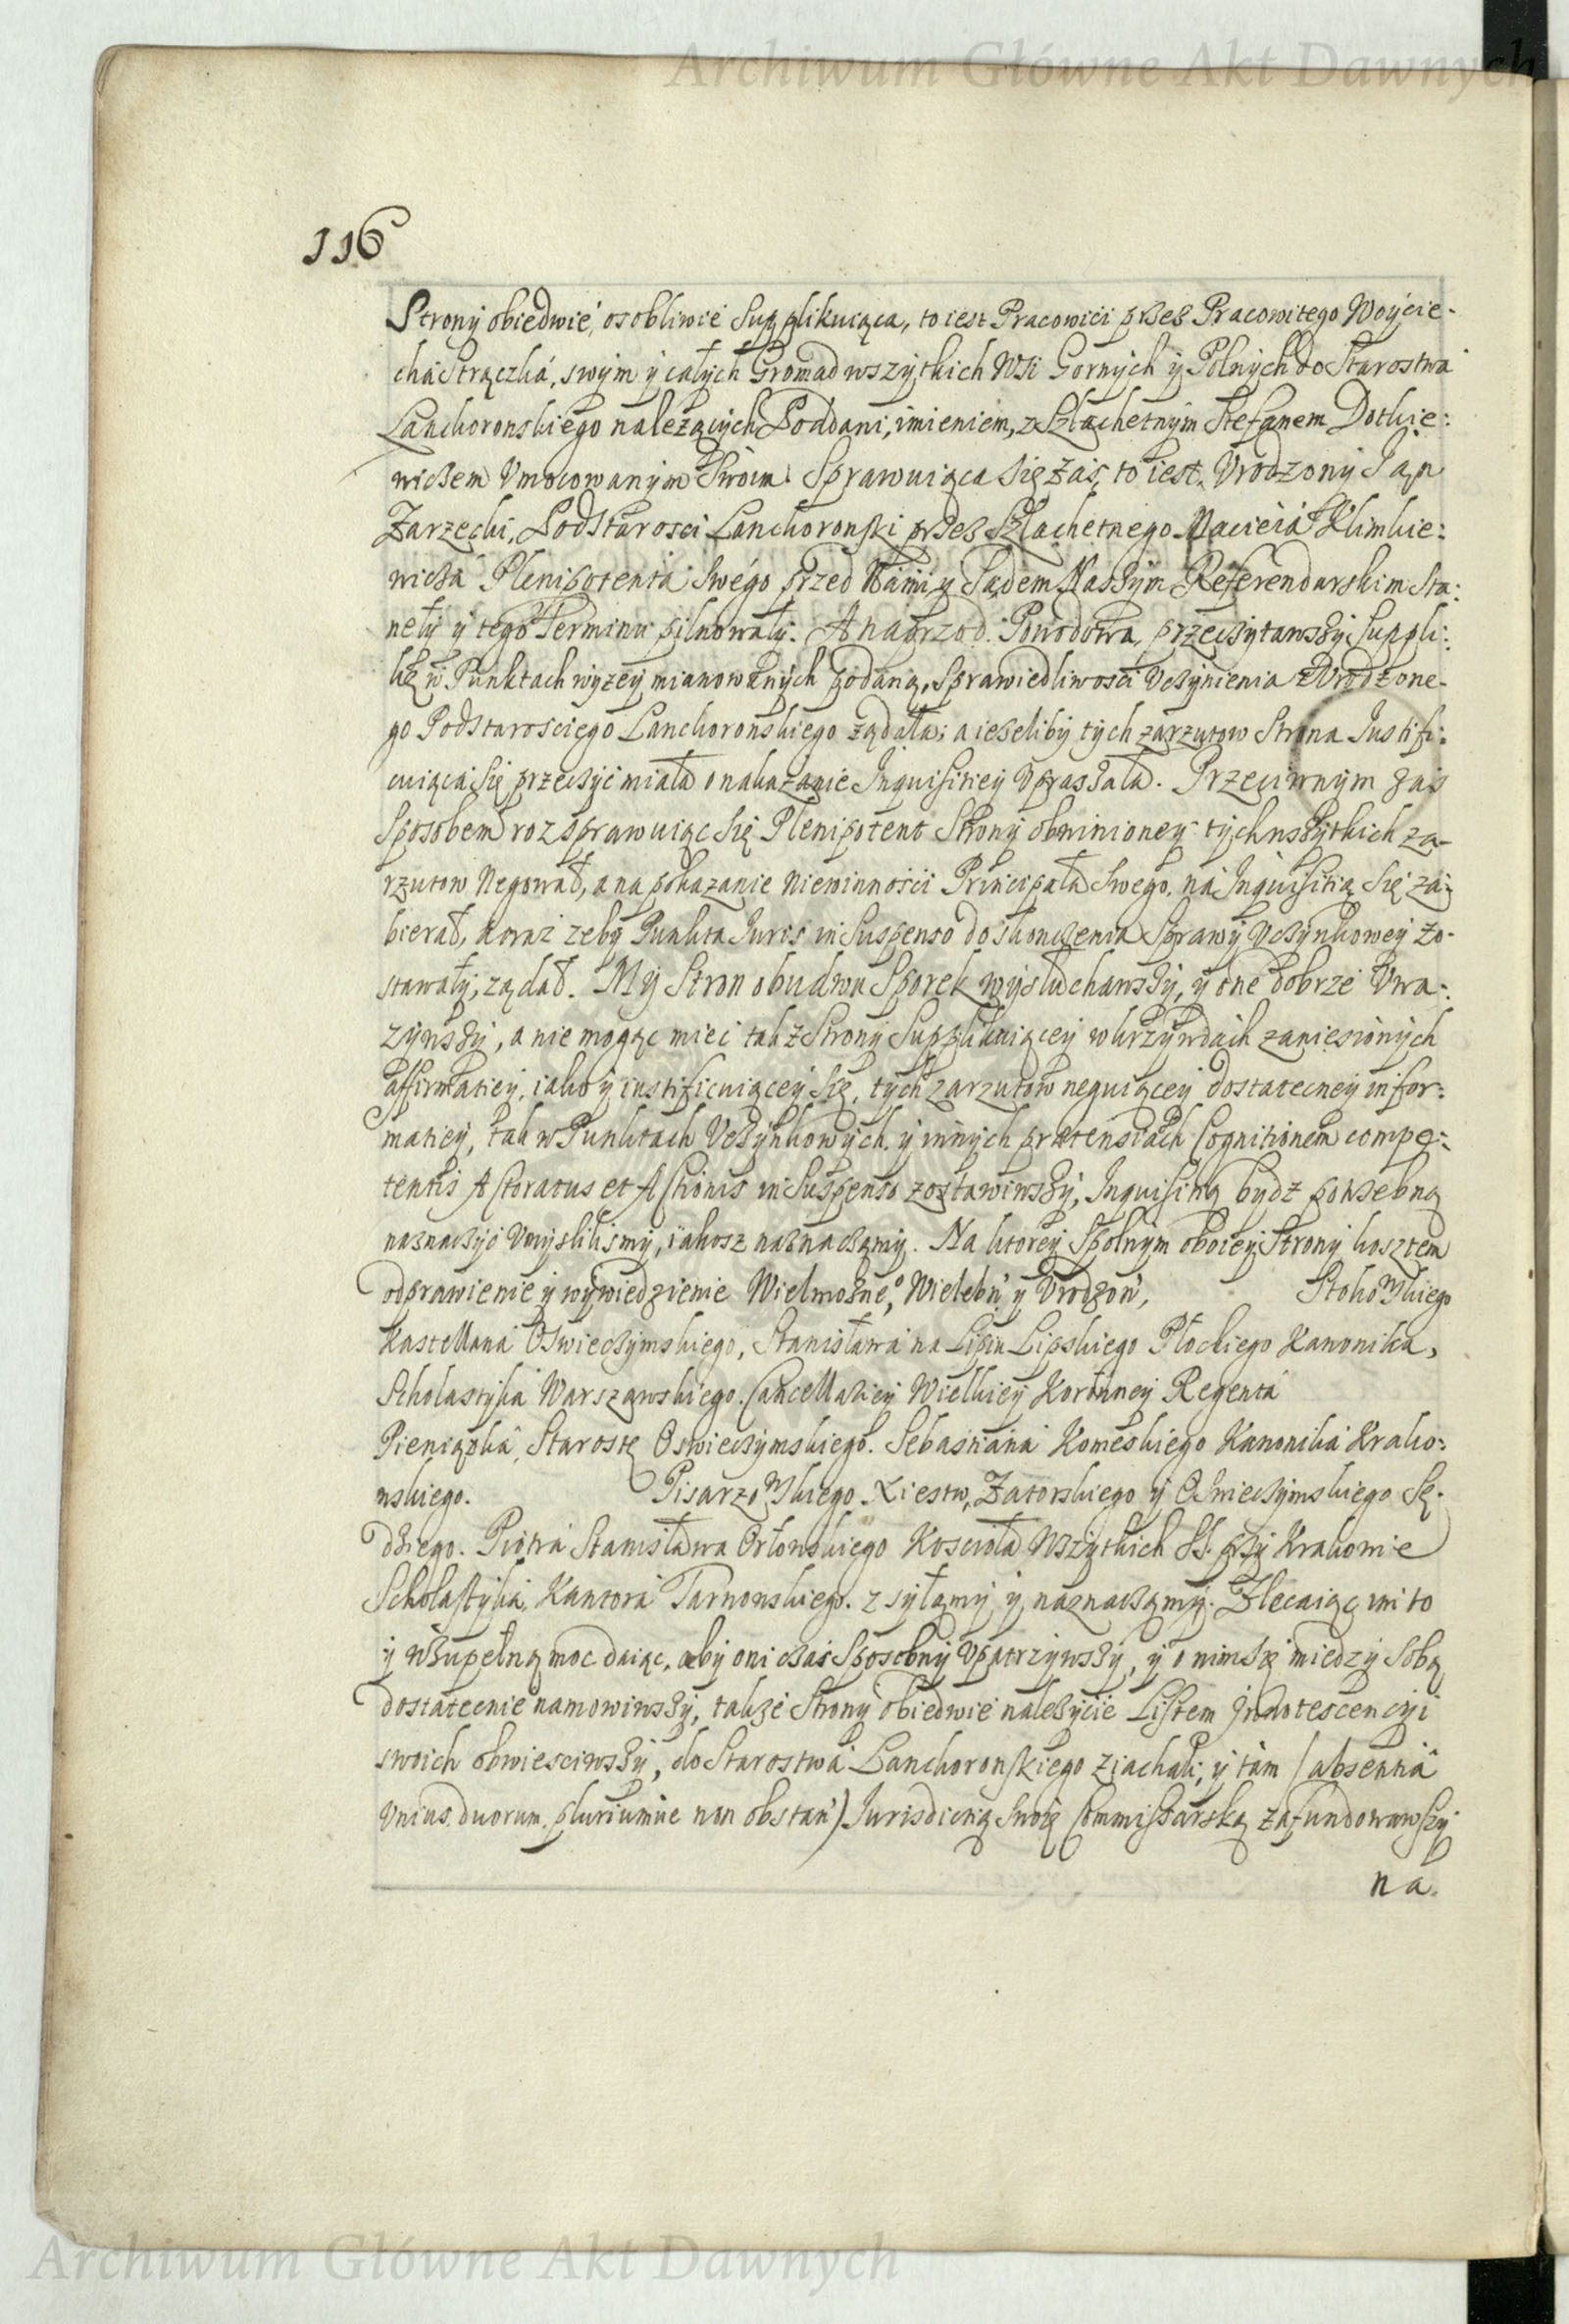 Archiwum Główne Akt Dawnych
116
Strony obiedwie, osobliwie Supplikuiąca, to iest Pracowići przez Pracowitego Woyćie-
chá Strączká, swym y cáłych Gromad wszytkich Wśi Gornych y Polnych do Starostwá
Lanckoronskiego należących Poddani, imieniem, z Szlachetnym Stefanem Dotkie:
wiczem Vmocowanym Swoim. Sprawuiąca się záś, to iest, Vrodzony Ian
Zarzecki, Podstarosci Lanckoroński przez Szlachetnego Macieiá Klimkie:
wiczá Plenipotentá Swego przed Nami y Sądem Naszym Referendarskim Sta:
neły y tego Terminu pilnowały. A naprzod Powodowa, przeczytawszy Suppli:
kę w Punktach wyzey mianowanych podaną, Sprawiedliwośći Vczynienia z Vrodzone-
go Podstarosciego Lanckoronskiego ządała; a ieżeliby tych zarzutow Strona Iustifi:
cuiąca się przeczyć miała o nakazanie Inquisitiey Vpraszała. Przeciwnym zaś
Sposobem rozsprawuiąc się Plenipotent Strony obwinioney tych wszytkich za-
rzutow Negował, a na pokazanie niewinnośći Principała Swego, ná Inquisitią się zá:
bierał, áoraz żeby Punkta Iuris in Suspenso do skonczenia Sprawy Vczynkowey zo-
stawały, ządał. My Stron obudwu Sporek wysłuchawszy, y one dobrze Vwa:
zywszy, a nie mogąc mieć tak z Strony Supplikuiącey w krzywdách zaniesionych
affirmatiey, iako y iustificuiącey się, tych zarzutow neguiącey dostateczney infor:
matiey, tak w Punktach Vczynkowych, y innych praetensiach Cognitionem compe:
tentis Actoratus et Actionis in Suspenso zostawiwszy, Inquisitią bydź potrzebną
naznaczyć Vmyśliliśmy, iákosz náznaczámy. Na ktorey Spolnym oboiey Strony kosztem
odprawienie y wywiedzienie Wielmożne°, Wielebn, y Vrodzon, Stokowskiego
Kasztellaná Oswieczymskiego, Stanisławá na Lipiu Lipskiego Płockiego Kanonika,
Scholastyka Warszawskiego, Cancellariey Wielkiey Koronney Regentá
Pieniążká, Starostę Oswieczymskiego. Sebastianá Komeskiego Kanonika Krako:
wskiego. Pisarzowskiego. Xiestw, Zatorskiego y Oswieczymskiego Sę-
dziego. Piotrá Stanisława Orłowskiego Kosciołá Wszytkich SS. przy Krakowie
Scholastyká, Kantorá Tarnowskiego. zsyłamy y naznaczamy. Zlecaiąc im to
y zupełną moc daiąc, aby oni czas Sposobny Vpatrzywszy, y o nim się miedzy Sobą
dostatecznie namowiwszy, także Strony obiedwie należycie Listem Innotescencyi
swoich obwiesciwszy, do Starostwá Lanckoronskiego ziachali, y tám (absentiâ
Vnius, duorum, pluriumue non obstan) Iurisdictią Swoię Commissarską zafundowawszy
ná
Archiwum Główne Akt Dawnych